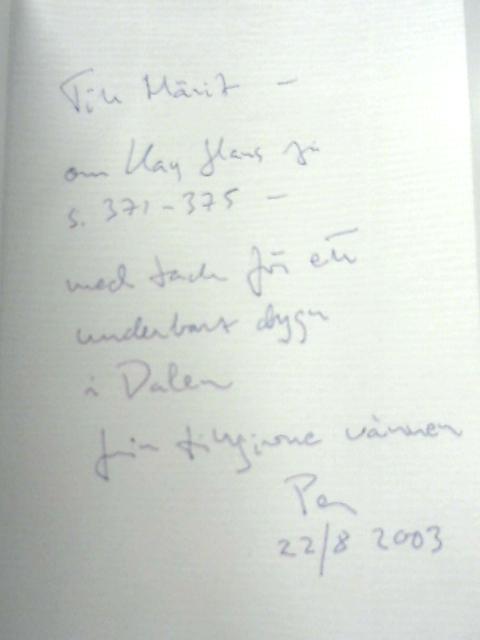 Till Märit –
om Kay Glans se
s. 371–375 –
med tack för ett
underbart dygn
i Dalen
från tillgivne vännen
Per
22/8 2003